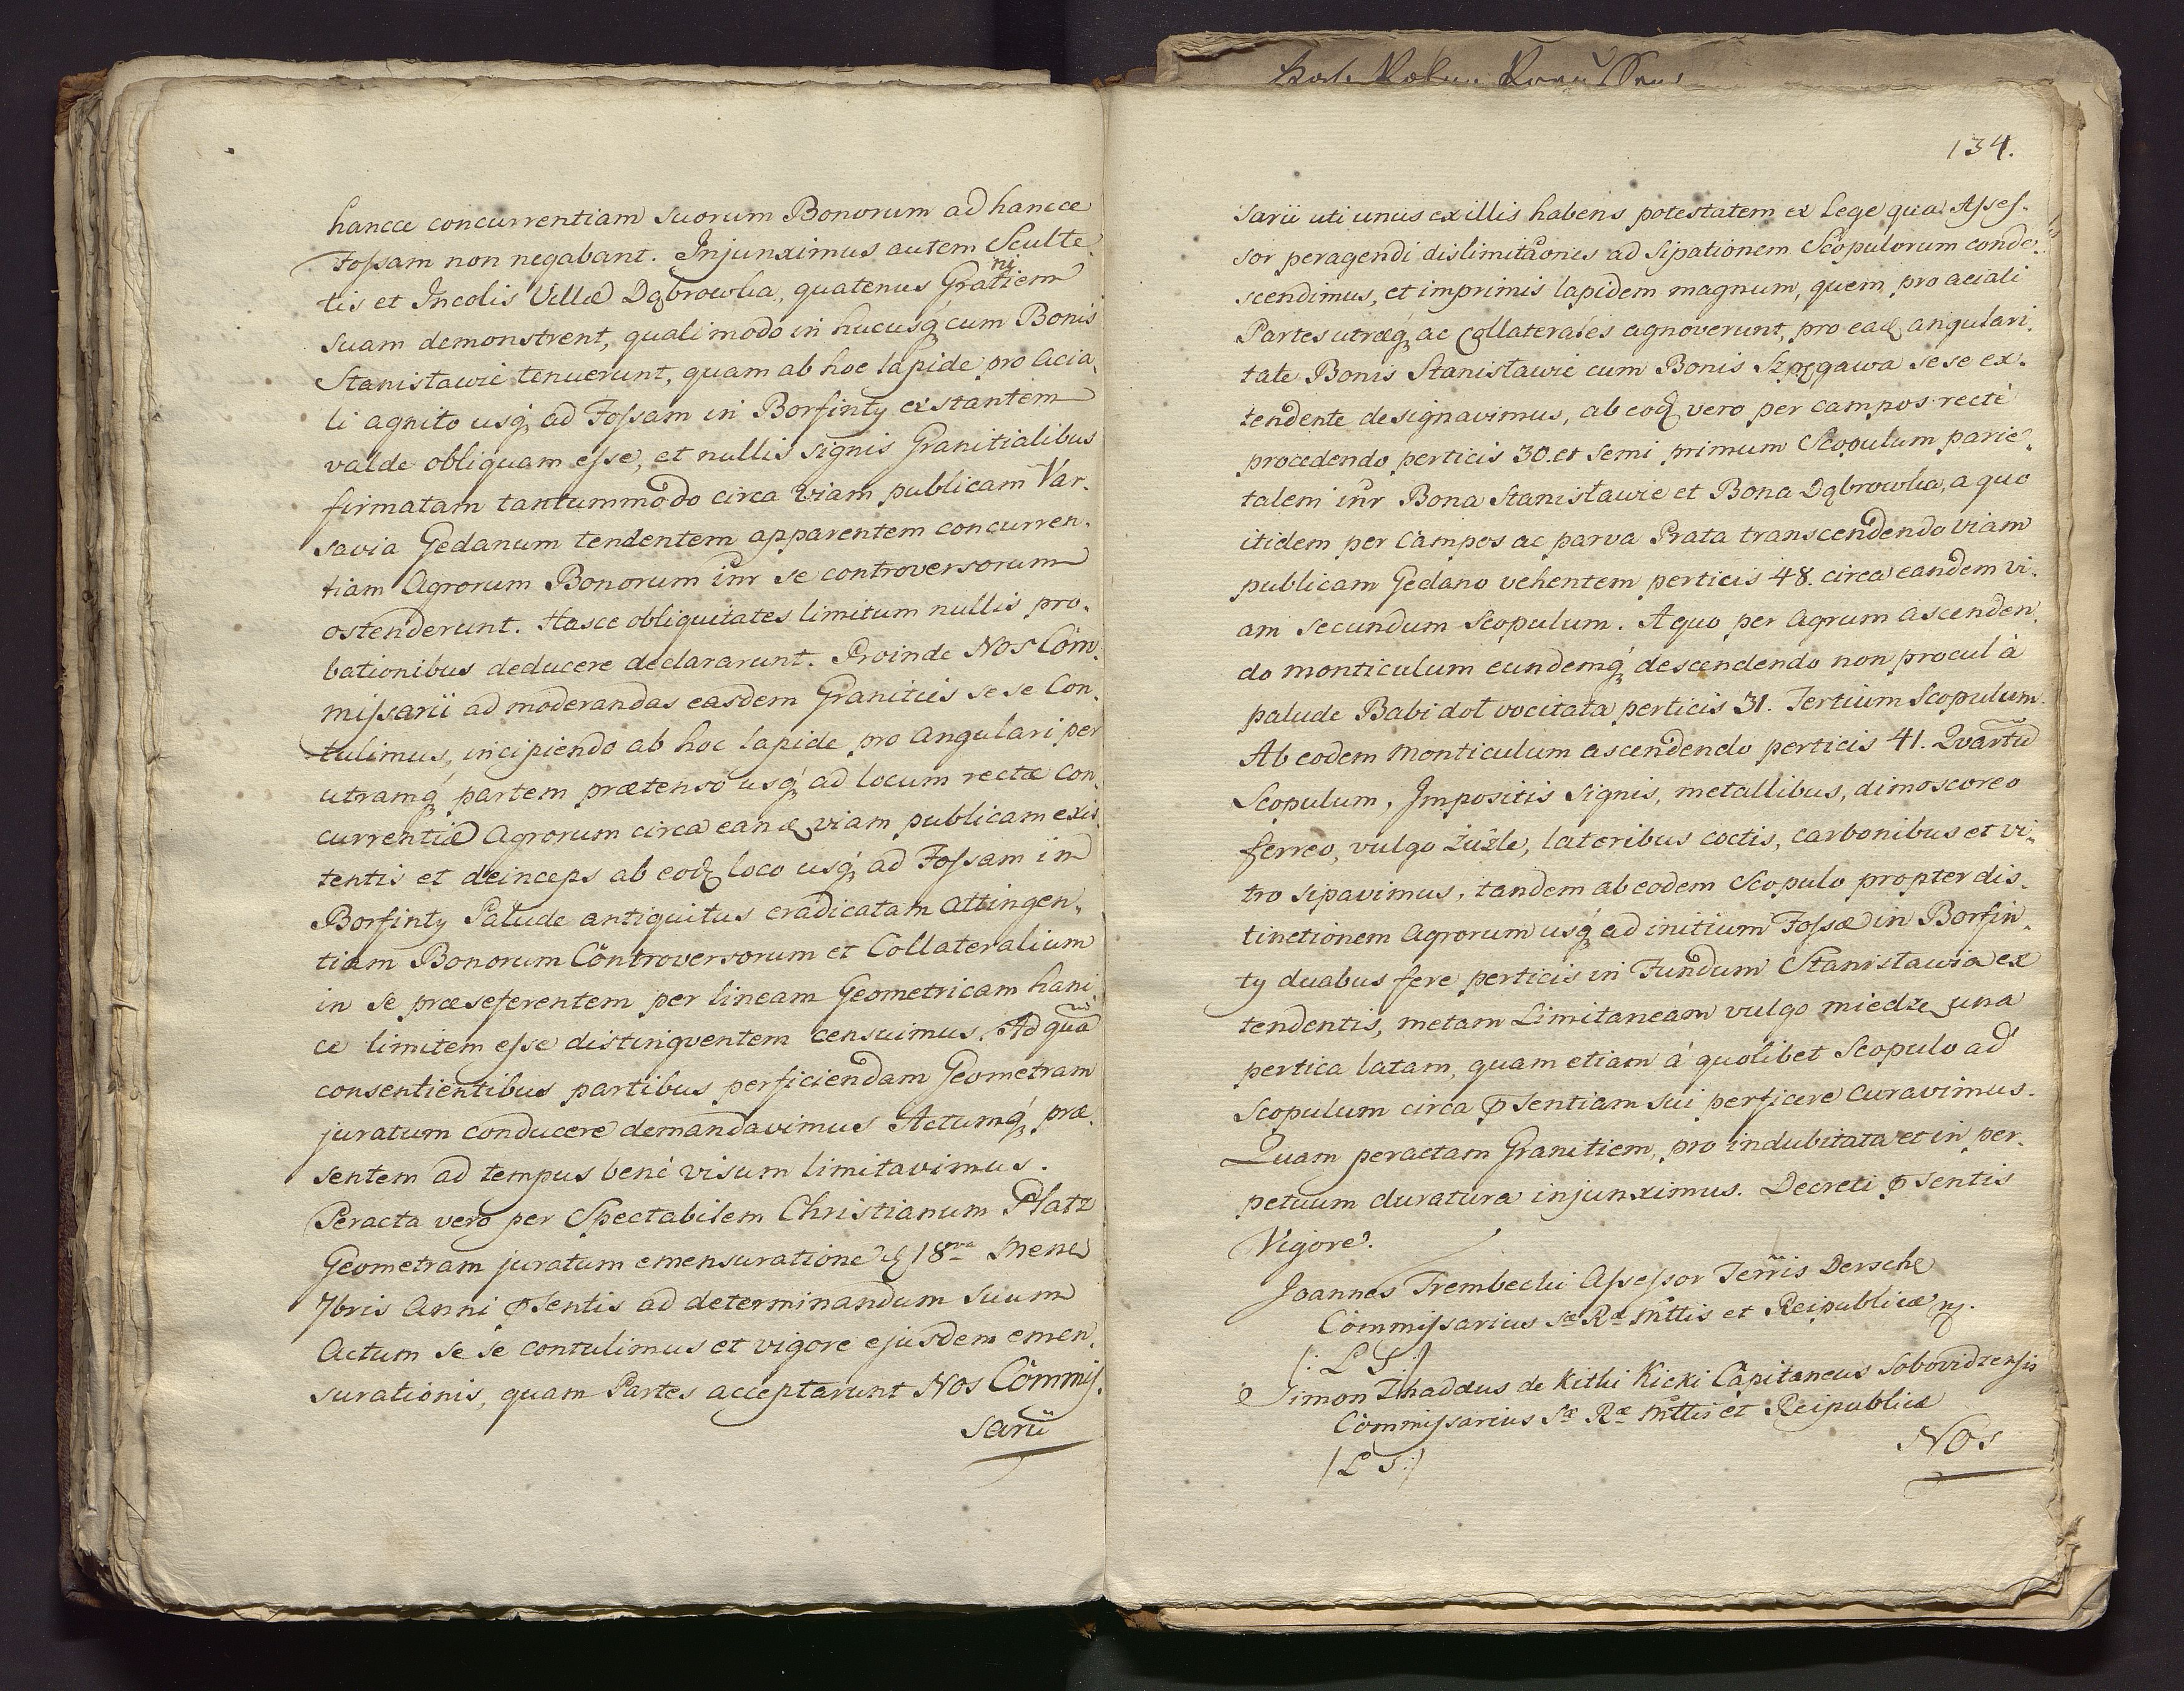 hancce concurrentiam suorum Bonorum ad hancce
Fossam non negabant. Injunximus autem Sculte
tis et Incolis Villæ Dąbrowka, quatenus Gratiem
ni
suam demonstrent, quali modo in hucusq́ cum Bonis
Stanisławie tenuerunt, quam ab hoc lapide pro acia,
li agnito usq́ ad Fossam in Borfinty exstantem
valde obliquam esse, et nullis signis Granitialibus
firmatam tantummodo circa viam publicam Var.
savia Gedanum tendentem apparentem concurren,
tiam Agrorum Bonorum inr se controversorum
ostenderunt. Hasce obliquitates limitum nullis pro,
bationibus deducere declararunt. Proinde Nos Com,
missarii ad moderandas easdem Granities se se Con,
tulimus, incipiendo ab hoc lapide pro angulari per
utramq́ partem prætenso usq́ ad locum rectæ con,
currentiæ Agrorum circa eanđ viam publicam exis
tentis et deinceps ab eođ loco usq́ ad Fossam in
Borfinty Palude antiquitus eradicatam attingen,
tiam Bonorum Controversorum et Collateralium
in se præseferentem per lineam Geometricam hanc
ce limitem esse distinquentem censuimus. Ad quā
consentientibus partibus perficiendam Geometram
juratum conducere demandavimus Actumq́ præ
sentem ad tempus benè visum limitavimus.
Peracta vero per Spectabilem Christianum Platz
Geometram juratum emensuratione đ 18va Mens
7bris Anni φsentis ad determinandum suum
Actum se se contulimus et vigore ejusdem emen,
surationis, quam Partes acceptarunt Nos Commis.
sarii
134.
sarii uti unus ex illis habens potestatem ex Lege qua Asses-
sor peragendi dislimitaonis ad sipationem Scopulorum conde,
scendimus, et imprimis lapidem magnum, quem pro aciali
Partes utræq́ ac Collaterales agnoverunt, pro eađ angulari,
tate Bonis Stanisławie cum Bonis Szpęgawa se se ex-
tendente designavimus, ab eođ vero per campos rectè
procedendo perticis 30. et semi primum Scopulum parie,
talem inr Bona Stanisławie et Bona Dąbrowka, a quo
itidem per campos ac parva Prata transcendendo viam
publicam Gedano vehentem perticis 48. circa eandem vi,
am secundum Scopulum. A quo per Agrum ascenden,
do monticulum eundemq́ descendendo non procul à
palude Babi doł vocitata perticis 31. Tertium Scopulum.
Ab eodem Monticulum ascendendo perticis 41. Qvartū
Scopulum, Impositis signis, metallibus, dimoscoreo
ferreo, vulgo żużle, lateribus coctis, carbonibus et vi-
tro sipavimus, tandem ab eodem Scopulo propter dis,
tinctionem Agrorum usq́ ad initium Fossæ in Borfin,
ty duabus fere perticis in Fundum Stanisławia ex
tendentis, metam Limitaneam vulgo miedze una
pertica latam, quam etiam á quolibet Scopulo ad
Scopulum circa φsentiam sui perficere curavimus.
Quam peractam Granitiem, pro indubitata et in per,
petuum duratura injunximus. Decreti φsentis
Vigore.
Joannes Trembecki Assessor Terris Dersch
Commissarius Sæ Ræ Mttis et Reipublicæ
(: L S :)
Simon Thaddus de Kitki Kicki Capitaneus Sobovidzensis
Commissarius Sæ Ræ Mttis et Reipublicæ
(L S :)
Nos